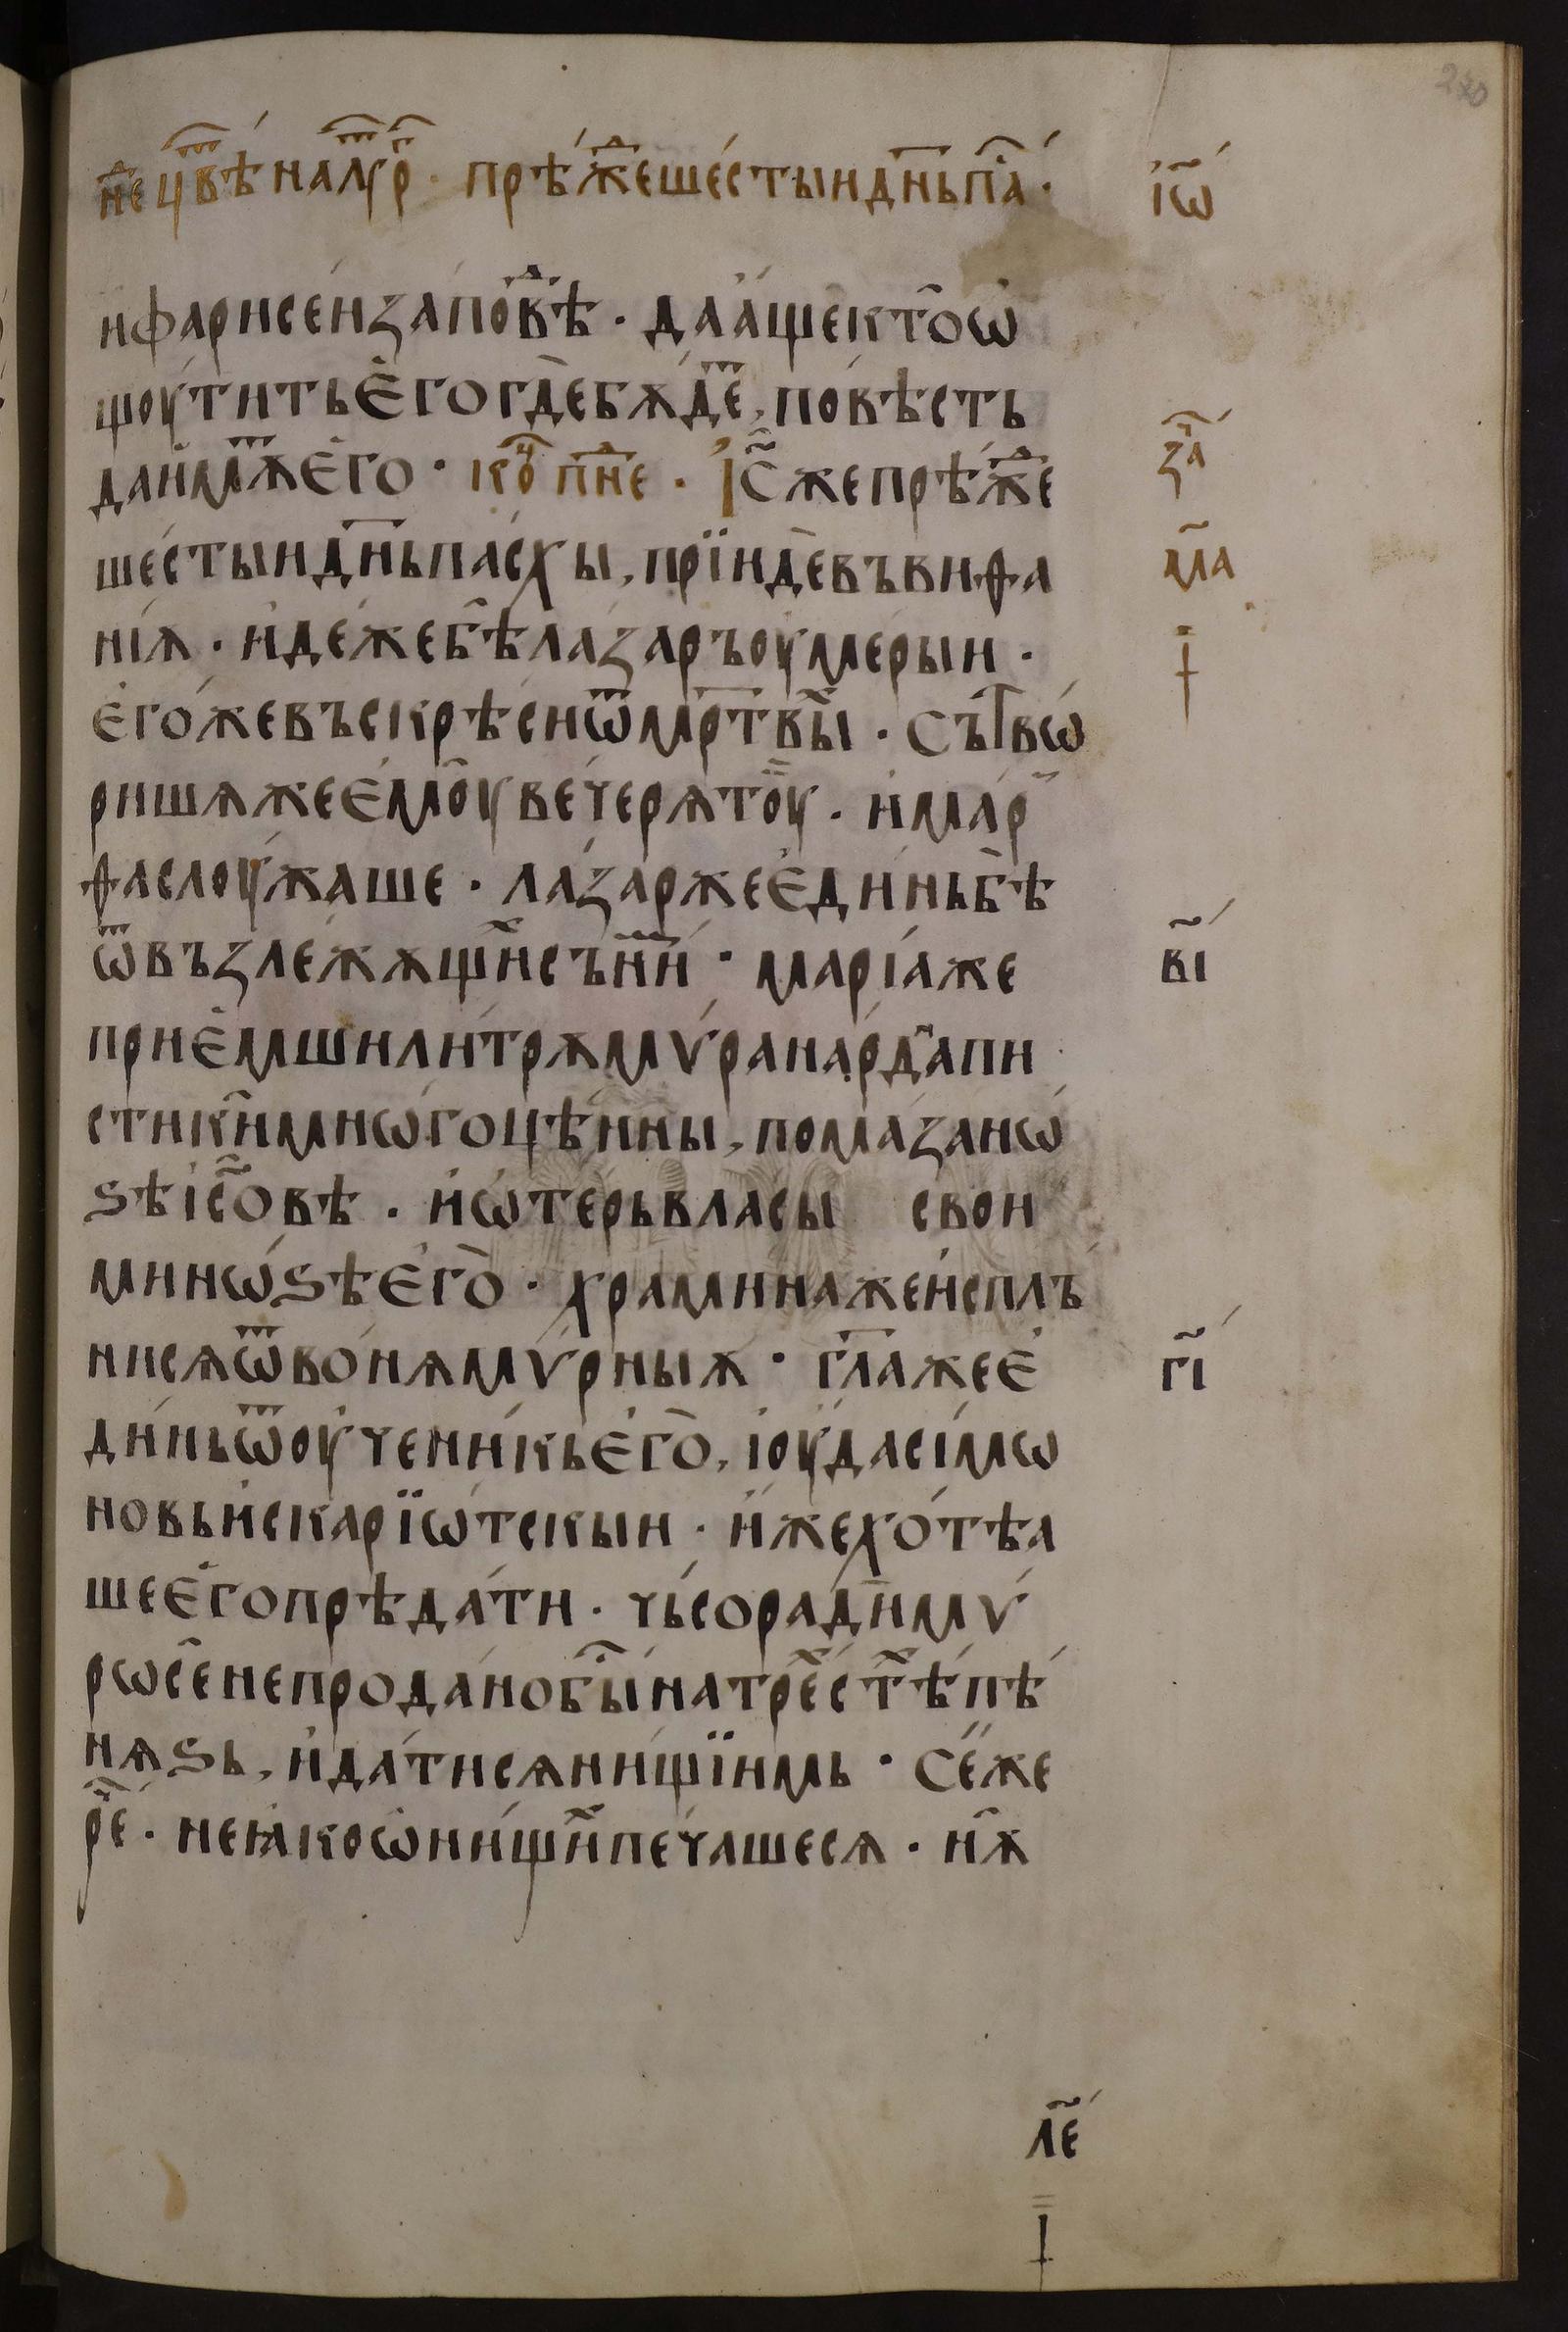 220
нⷣе цвⷮѣ на лѵⷮрⷢ · прѣ́жⷣе ше́стый дн҃ь паⷭ · іѡ҃
и фарисе́и заповⷣѣ · да а҆́ще кто̑ ѡ҆
щоу́тить є҆го гдѐ бѫдⷮе, повѣсть
да и҆мⷮѫ є҆го · коⷰ пнⷣе · І҆с҃ же прѣжⷣе заⷱ
ше́стый дн҃ь па́схы, прїидѐ въ виѳа м҃а
нїѫ · и҆де́же бѣ̑ ла́заръ оумерыи ·
є҆го́же въскрѣси ѿ мр҃твыⷯ · Сътвѡ́
ришѫ же є҆моу̑ вечерѫ тоу̑ · и҆ мар
ѳа слоу́жаше · ла́зар же є҆ди́нь бѣ̀
ѿ възлежѫщиⷯ съ ни́мⷨ · марі́а же в҃і
прие҆мши ли́трѫ мѵ́ра нарда̑ пи
стики̑ мнѡгоцѣ́нны, пома́за нѡ́
ѕѣ і҆с҃овѣ · и҆ ѡ҆терь власы свои
ми нѡ́ѕѣ є҆го̀ · храмина же и҆сплъ
ни сѧ ѿ во́нѧ мѵ́рныѫ · гл҃а же є҆ г҃і
ди́нь ѿ оу҆чени́кь є҆го̀, і҆оу́да сі́мѡ
новь и҆скарїѡ́тскыи · и҆́же хо́тѣа
ше є҆го прѣда́ти · чьсо ра́ди мѵ́
рѡ се̑ не прода́но быⷭ на треⷯ стⷯѣ пѣ́
нѧѕь, и҆ да́ти сѧ ни́щїимь · Се́ же
реⷱ · не ꙗ҆ко ѡ҆ ни́щиⷯ печаше сѧ · нѫ̑
л҃е